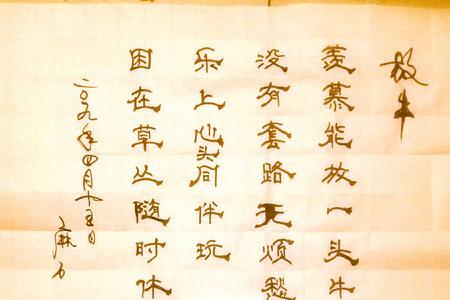 放牛
羡慕能放一头牛
没有套路无烦愁
乐上心头同伴玩
困在草丛随时休
二〇一九年四月十五日
麻